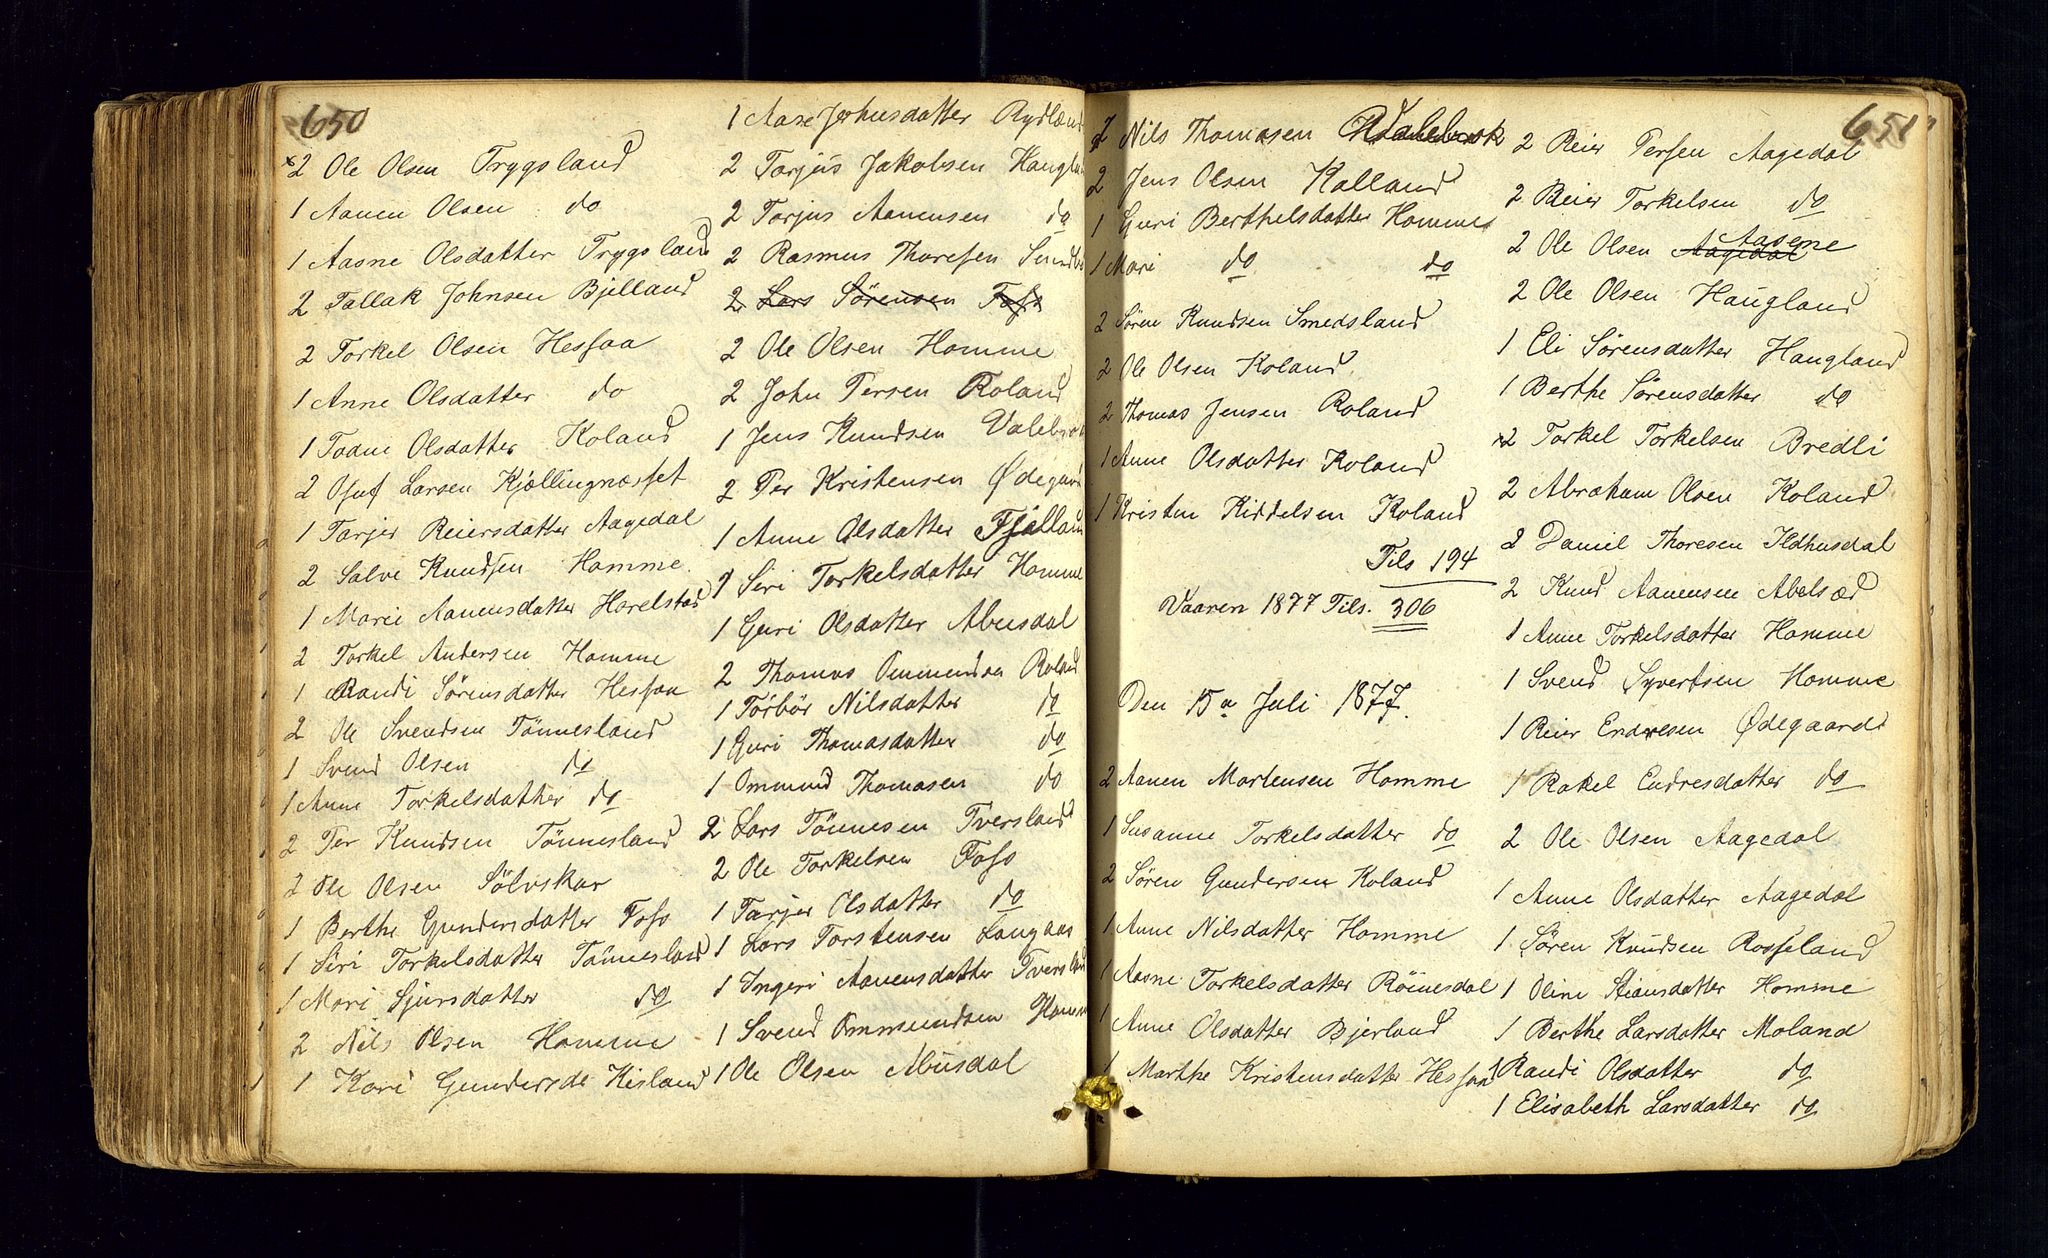 650
2 Ole Olsen Trygsland
1 Aanen Olsen do
1 Aasne Olsdatter Trygsland
2 Tallak Johnsen Bjelland
2 Torkel Olsen Hessaa
1 Anne Olsdatter do
1 Todne Olsdatter Koland
2 Osuf Larsen Kjøllingnæsset
1 Tarjer Reiersdatter Aagedal
2 Salve Knudsen Homme.
1 Marie Aanensdatter Harelstad
2 Torkel Andersen Homme
1 Randi Sørensdatter Hessaa
2 Ole Svendsen Tönnesland
1 Svend Olsen do
1 Anne Torkelsdatter do
2 Per Knudsen Tönnesland
2 Ole Olsen Sölvskar
1 Berthe Gundersdatter Foss
1 Siri Torkelsdatter Tönnesland
1 Mari Sjursdatter do
2 Nils Olsen Homme
1 Kari Gundersd. Kisland
1 Aase Jerhusdatter Rydland
2 Tarjus Jakobsen Haugland
2 Tarjus Aanensen do
2 Rasmus Thoresen
2 Lars Sörensen Foss
2 Ole Olsen Homme
2 John Persen Roland
1 Jens Knudsen
2 Per Kristensen Ødegaard
1 Anne Olsdatter Fjelland
1 Siri Torkelsdatter Homme
1 Guri Olsdatter Abusdal
2 Thomas Ommundsen Roland
1 Törbör Nilsdatter do
1 Guri Thomasdatter do
1 Ommund Thomasen do
2 Lars Tönnesen Tversland
2 Ole Torkelsen Foss
1 Tarjer Olsdatter do
1 Lars Torstensen Langaas
1 Ingeri Aanensdatter Tversland
1 Svend Ommundsen Homme
1 Ole Olsen Abusdal
651
Nils Thomasen
2 Jens Olsen Kalland
1 Guri Berthelsdatter Homme
1 Mari do do
2 Søren Knudsen Smedsland
2 Ole Olsen Koland.
2 Thomas Jensen Roland
1 Anne Olsdatter Koland
1 Kristen Kiddelsen Koland
Tils 194
Vaaren 1877 Tils. 306
Den 15de Juli 1877.
2 Aanen Mortensen Homme
1 Susanne Torkelsdatter do
2 Søren Gundersen Koland
1 Anne Nilsdatter Homme
1 Aasne Torkelsdatter Röinesdal
1 Anne Olsdatter Bjerland
1 Marthe Kristensdatter Hessaa
2 Reier Persen Aagedal
2 Reier Torkelsen do
2 Ole Olsen Aagedal Aasene
2 Ole Olsen Haugland
1 Eli Sørensdatter Haugland
1 Berthe Sørensdatter do
2 Torkel Torkelsen Bredli
2 Abraham Olsen Koland
2 Daniel Thoresen Ildhusdal
2 Knud Aanensen Abelsæd
1 Anne Torkelsdatter Homme
1 Svend Syvertsen Homme
1 Reier Endresen Ødegaard
1 Rakel Endresdatter do
2 Ole Olsen Aagedal
1 Anne Olsdatter Aagedal
1 Søren Knudsen Rosseland
1 Oline Stiansdatter Homme
1 Berthe Larsdatter Moland
1 Randi Olsdatter do
1 Elisabeth Larsdatter do